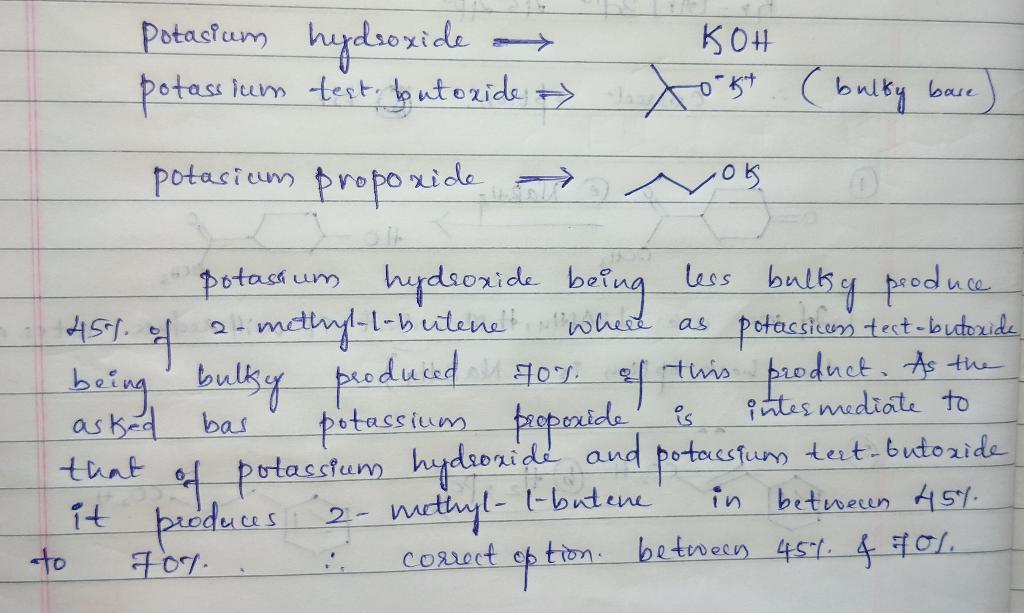 Potasium hydroxide → KOH
potassium tert. butoxide → O⁻K⁺ (bulky base)
potasium propoxide → OK
potassium hydroxide being less bulky produce
45% of 2-methyl-1-butene where as potassium tert-butoxide
being bulky produced 70% of this product. As the
asked bas potassium propoxide is intermediate to
that of potassium hydroxide and potassium tert-butoxide
it produces 2-methyl-1-butene in between 45%
to 70%. ∴ correct option. between 45% & 70%.